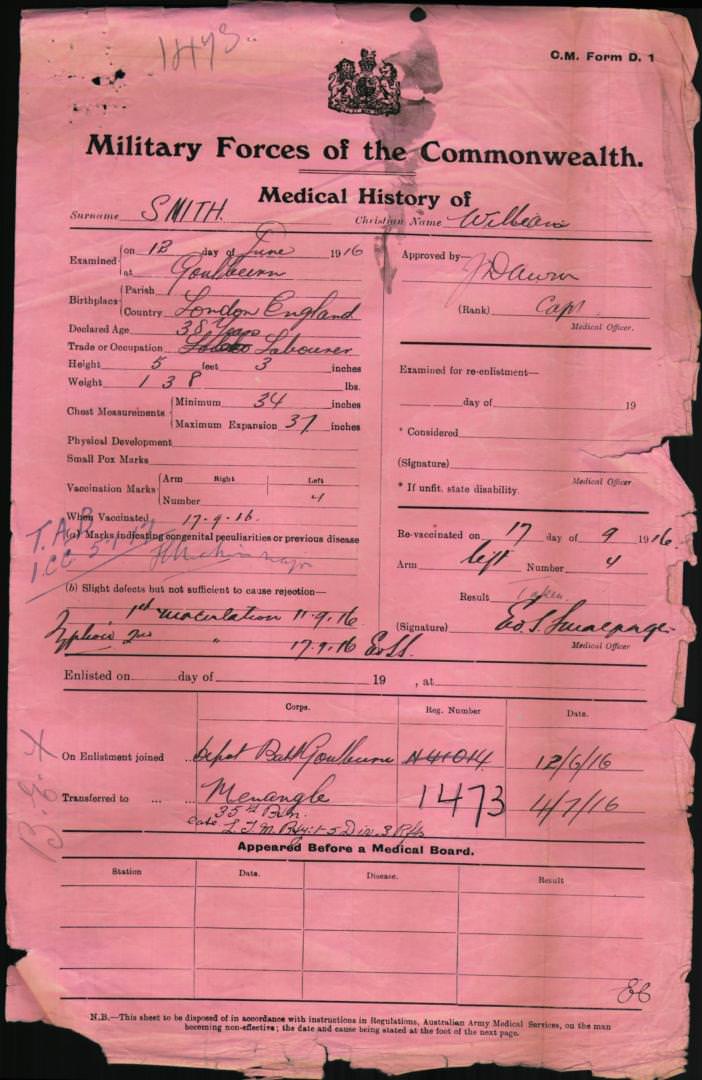 1473
C.M. Form D. 1
Military Forces of the Commonwealth.
Medical History of
Surname SMITH. Christian Name William
Examined on 12 day of June 1916
at Goulburn
Birthplace Parish
Country London England
Declared Age 38 Years
Trade or Occupation Labourer
Height 5 feet 3 inches
Weight 138 lbs.
Chest Measurements Minimum 34 inches
Maximum Expansion 37 inches
Physical Development
Small Pox Marks
Vaccination Marks Arm Right Left
Number 4
When Vaccinated 17.9.16.
(a) Marks indicating congenital peculiarities or previous disease
T.A.B
1.CC
(b) Slight defects but not sufficient to cause rejection—
1st inoculation 11.9.16
Typhoid 2nd " 17.9.16
Approved by—
(Rank) Capt
Medical Officer.
Examined for re-enlistment—
day of 19
* Considered
(Signature)
Medical Officer
* If unfit, state disability.
Re-vaccinated on 17 day of 9 1916.
Arm left Number 4
Result taken
(Signature)
Medical Officer
Enlisted on day of 19 , at
Corps. Reg. Number Date.
On Enlistment joined ... Depot Batt Goulburn N41014. 12/6/16
Transferred to ... ... Menangle 1473 4/7/16
35th Bn.
Appeared Before a Medical Board.
Station Date. Disease. Result
N.B.—This sheet to be disposed of in accordance with instructions in Regulations, Australian Army Medical Services, on the man
becoming non-effective; the date and cause being stated at the foot of the next page.